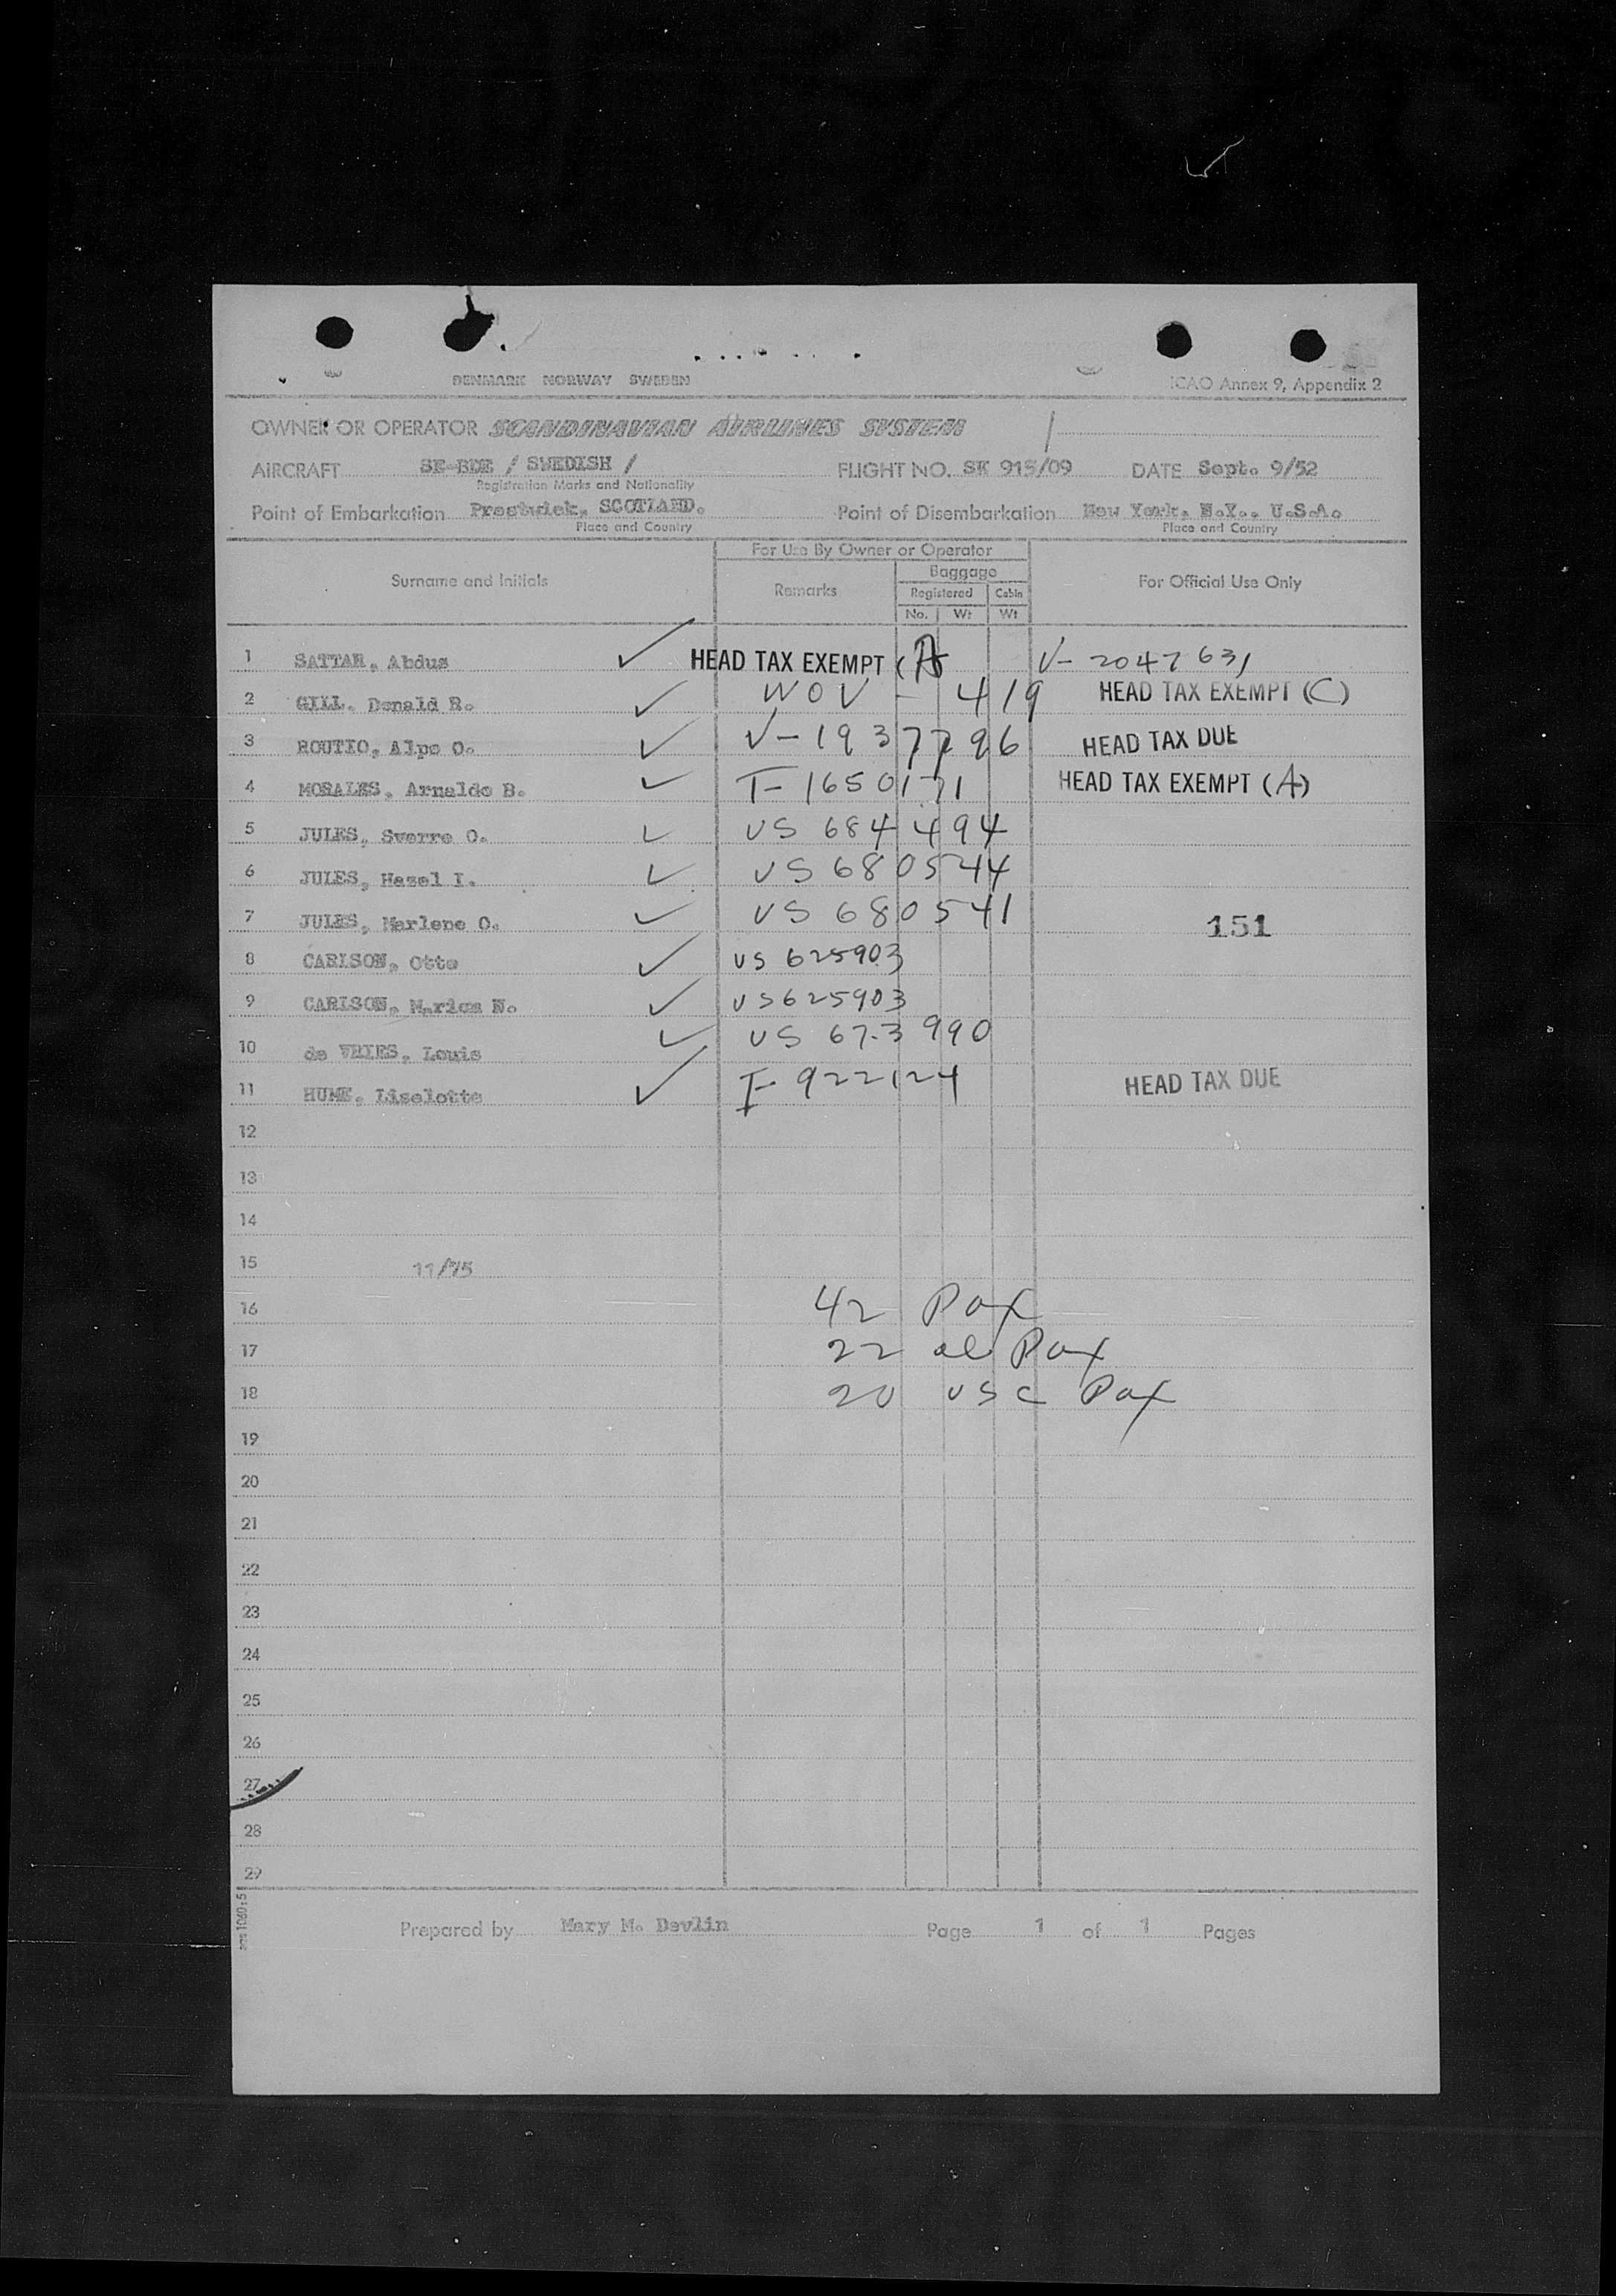 DENMARK NORWAY SWEDEN
ICAO Annex 9, Appendix 2
OWNER OR OPERATOR SCANDINAVIAN AIRLINES SYSTEM
AIRCRAFT SE-BDE / SWEDISH / FLIGHT NO. SK 915/09 DATE Sept. 9/52
Registration Marks and Nationality
Point of Embarkation Prestwick, SCOTLAND. Point of Disembarkation New York, N.Y., U.S.A.
Place and Country Place and Country
For Use By Owner or Operator
Surname and Initials Remarks Baggage For Official Use Only
Registered Cabin
No. Wt Wt
1 SATTAR, Abdus HEAD TAX EXEMPT (A V-2047631
2 GILL, Donald R. WOV - 419 HEAD TAX EXEMPT (C)
3 ROUTIO, Alpo O. V-1937796 HEAD TAX DUE
4 MORALES, Arnaldo B. T-1650171 HEAD TAX EXEMPT (A)
5 JULES, Sverre O. US 684494
6 JULES, Hazel I. US 680544
7 JULES, Marlene O. US 680541 151
8 CARLSON, Otto US 625903
9 CARLSON, N. US625903
10 de VRIES, Louis US 673990
11 HUME, Liselotte I-922124 HEAD TAX DUE
12
13
14
15 11/75
16 42 Pax
17 22 al Pax
18 20 USC Pax
19
20
21
22
23
24
25
26
27
28
29
Prepared by Mary M. Devlin Page 1 of 1 Pages